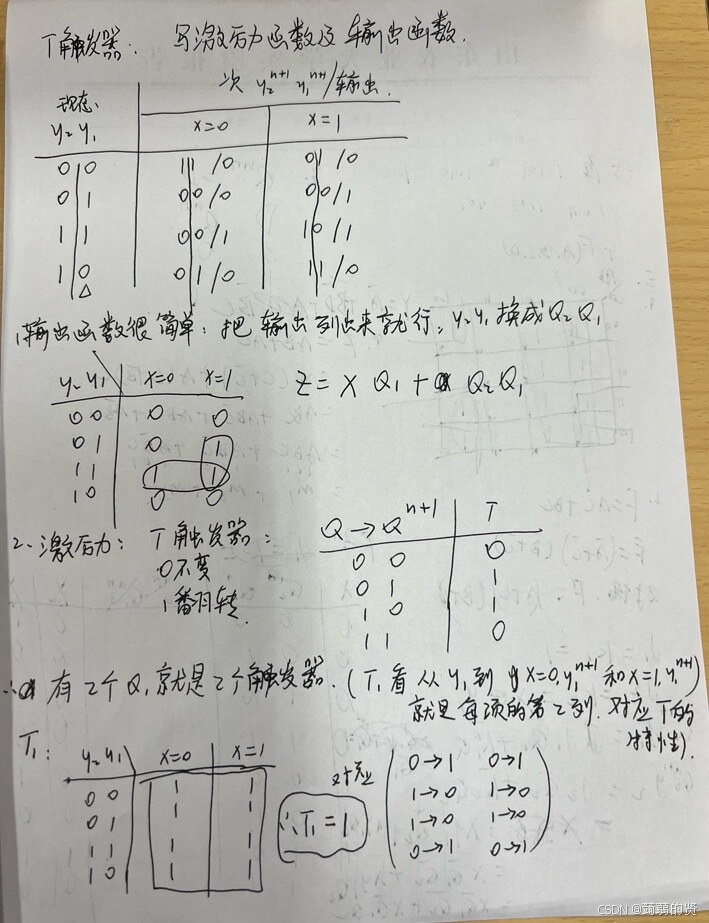 T触发器: 写激励函数及输出函数.
次 y₂ⁿ⁺¹ y₁ⁿ⁺¹/输出.
现态:
y₂ y₁ x=0 x=1
0 0 11/0 01/0
0 1 00/0 00/1
1 1 00/1 10/1
1 0 01/0 11/0
△
1.输出函数很简单: 把输出列出来就行, y₂y₁换成Q₂Q₁
y₂y₁ x=0 x=1 Z = X Q₁ + Q₂Q₁
00 0 0
01 0 1
11 1 1
10 0 0
2. 激励: T触发器: Q → Qⁿ⁺¹ T
0不变 0 0 0
1翻转 0 1 1
1 0 1
1 1 0
∴ 有2个Q, 就是2个触发器. (T₁看从y₁到 x=0,y₁ⁿ⁺¹ 和x=1,y₁ⁿ⁺¹)
就是每项的第2列. 对应T的
特性).
T₁: y₂y₁ x=0 x=1 对应
00 1 1 0→1 0→1
01 1 1 ∴T₁=1 1→0 1→0
11 1 1 1→0 1→0
10 1 1 0→1 0→1
CSDN @蒟蒻的贤